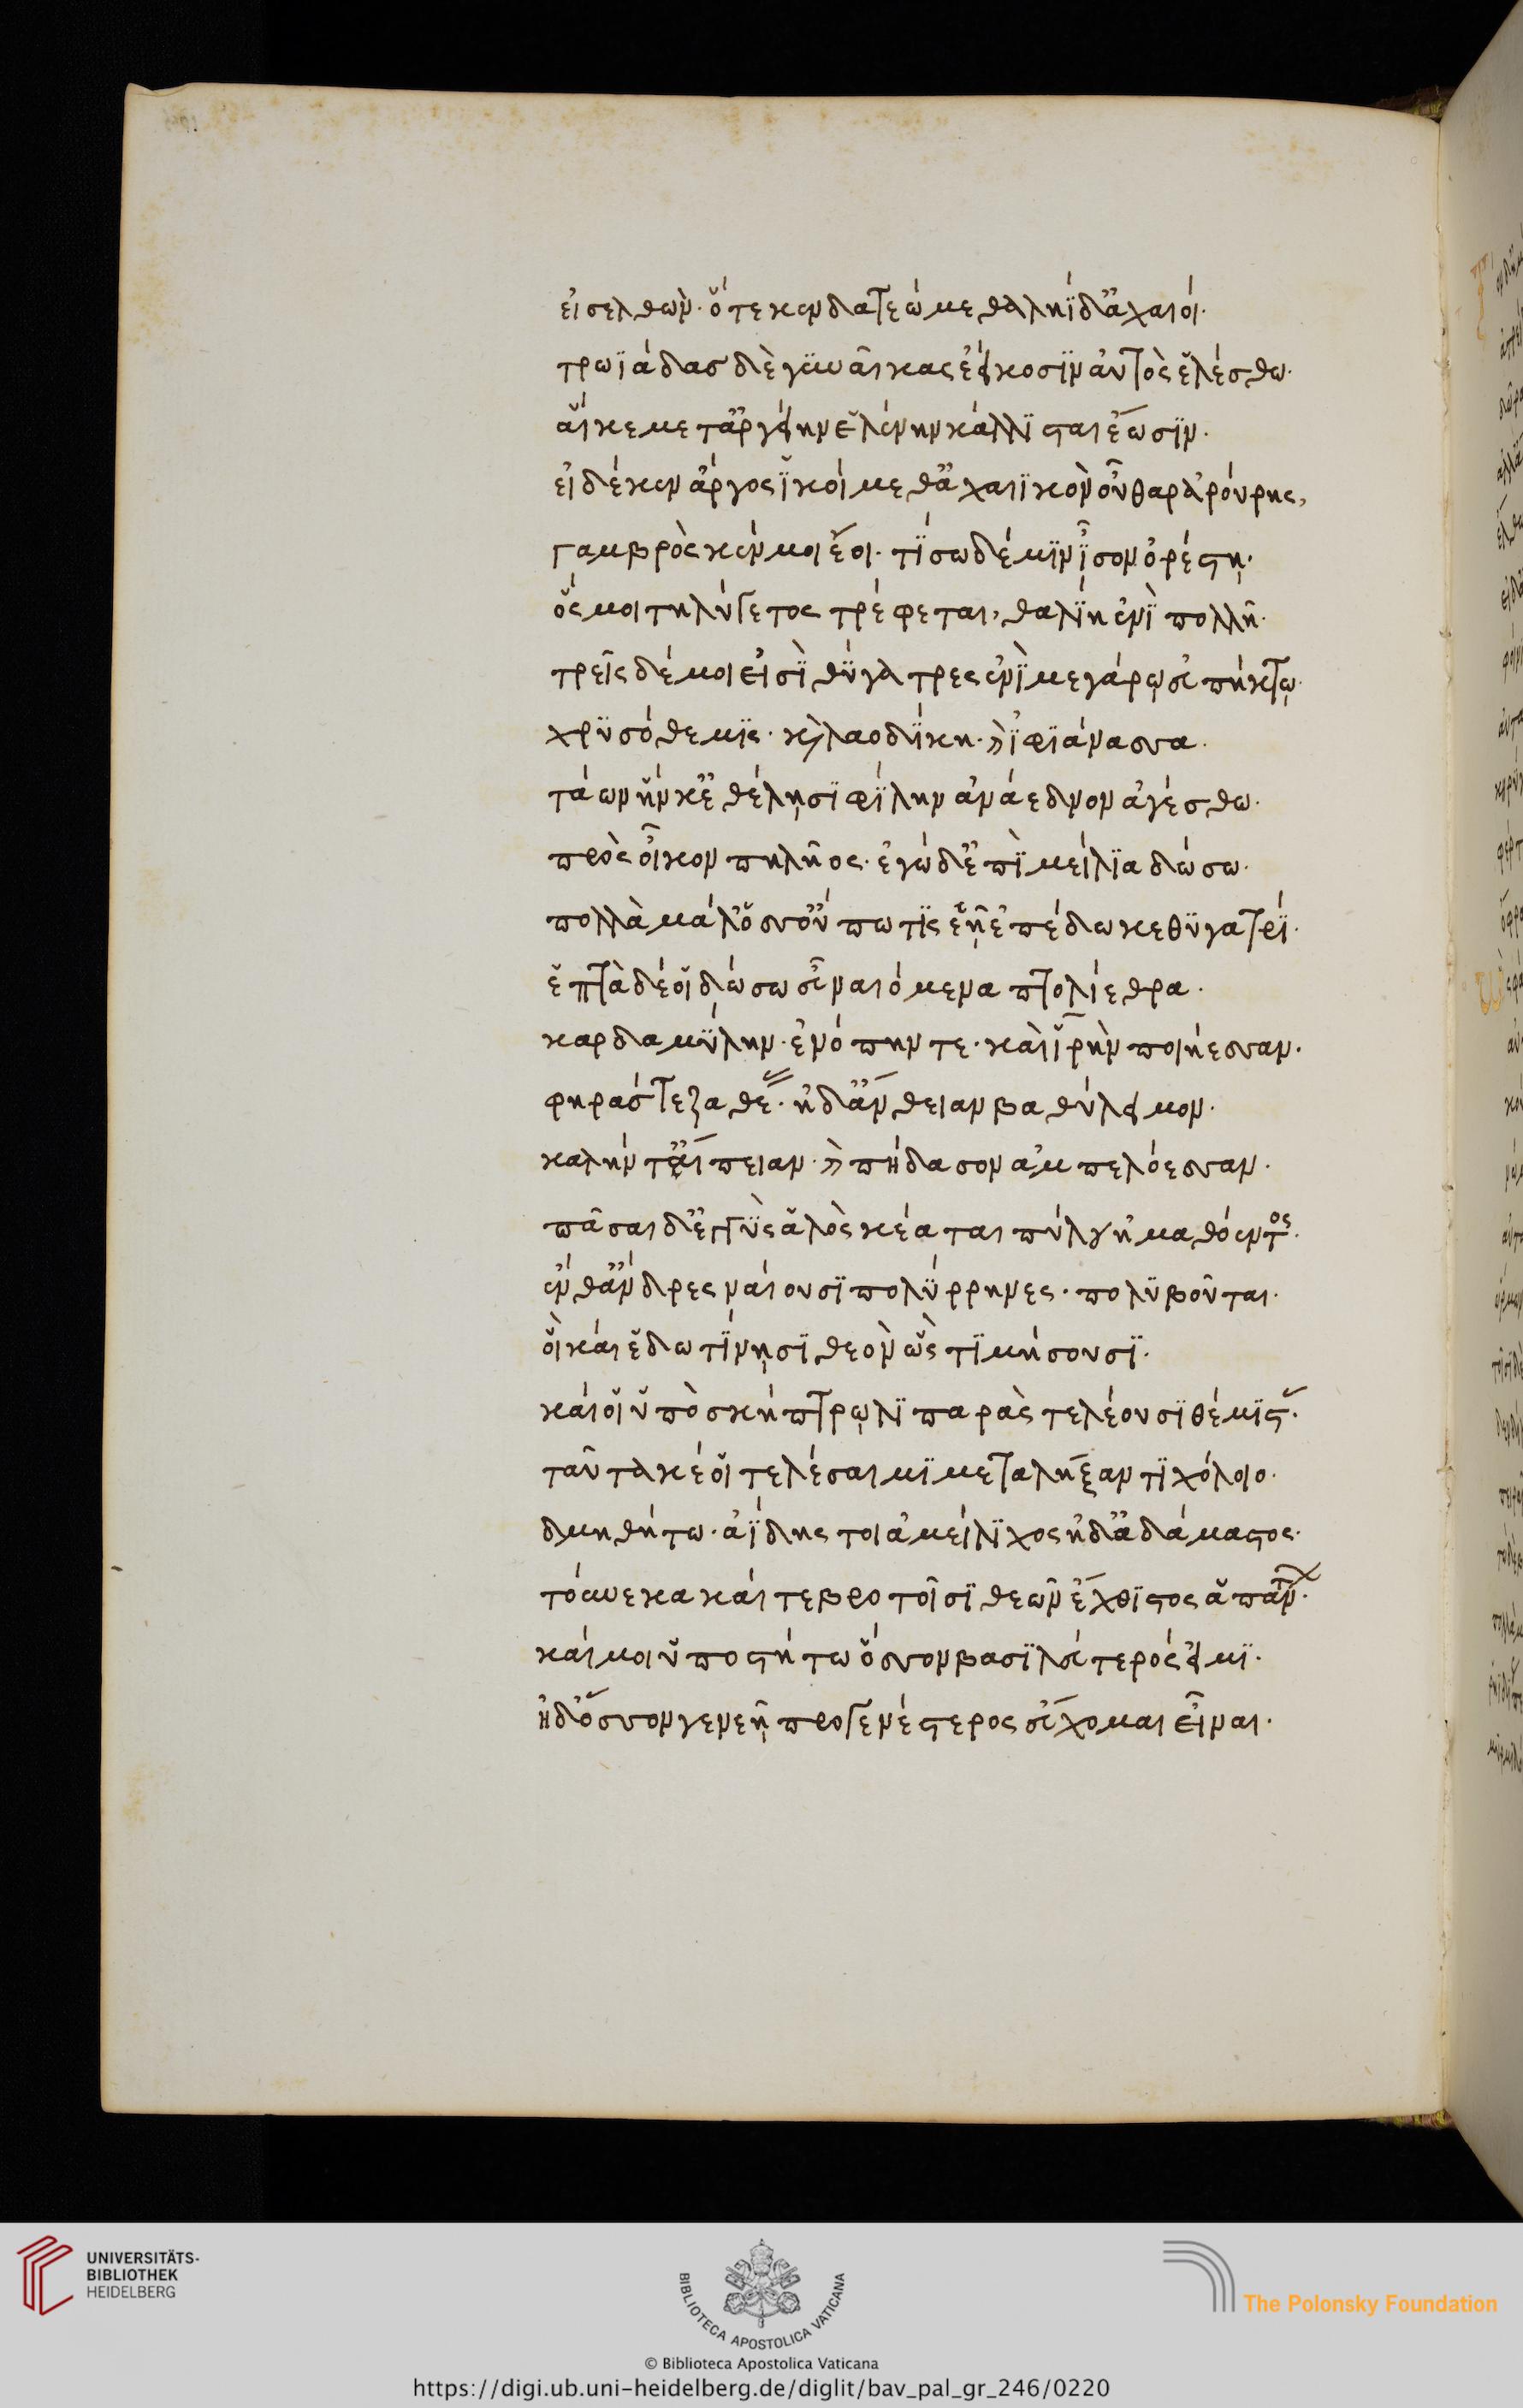 εἰσελθὼν· ὅτε κεν δατεώμεθα ληΐδ' ἀχαιοί·
τρωϊάδας δὲ γυναῖκας ἐείκοσιν αὐτὸς ἑλέσθω·
αἵ κε μετ' ἀργείην ἑλένην κάλλισται ἔωσιν·
εἰ δέ κεν ἄργος ἱκοίμεθ' ἀχαιϊκὸν οὖθαρ ἀρούρης,
γαμβρὸς κέν μοι ἔοι· τίσω δέ μιν ἶσον ὀρέστῃ·
ὅς μοι τηλύγετος τρέφεται, θαλίῃ ἐνὶ πολλῇ·
τρεῖς δέ μοι εἰσὶ θύγατρες ἐνὶ μεγάρῳ εὐπήκτῳ·
χρυσόθεμις· καὶ λαοδίκη· καὶ ἰφιάνασσα·
τάων ἥν κ' ἐθέλῃσι φίλην ἀνάεδνον ἀγέσθω·
πρὸς οἶκον πηλῆος· ἐγὼ δ' ἐπὶ μείλια δώσω·
πολλὰ μάλ' ὅσσ' οὔ πώ τις ἑῇ ἐπέδωκε θυγατρί·
ἑπτὰ δέ οἱ δώσω εὖ ναιόμενα πτολίεθρα·
καρδαμύλην· ἐνόπην τε· καὶ ἱρὴν ποιήεσσαν·
φηράς τε ζαθέας· ἠδ' ἄνθειαν βαθύλειμον·
καλήν τ' αἴπειαν· καὶ πήδασον ἀμπελόεσσαν·
πᾶσαι δ' ἐγγὺς ἁλὸς κέαται πύλου ἠμαθόεντος·
ἐν δ' ἄνδρες ναίουσι πολύρρηνες· πολυβοῦται·
οἵ κέ ἑ δωτίνῃσι θεὸν ὣς τιμήσουσι·
καί οἱ ὑπὸ σκήπτρῳ λιπαρὰς τελέουσι θέμιστας·
ταῦτά κέ οἱ τελέσαιμι μεταλήξαντι χόλοιο·
δμηθήτω· ἀΐδης τοι ἀμείλιχος ἠδ' ἀδάμαστος·
τούνεκα καί τε βροτοῖσι θεῶν ἔχθιστος ἁπάντων·
καί μοι ὑποστήτω ὅσσον βασιλεύτερός εἰμι·
ἠδ' ὅσσον γενεῇ προγενέστερος εὔχομαι εἶναι·
UNIVERSITÄTS-
BIBLIOTHEK
HEIDELBERG
BIBLIOTECA APOSTOLICA VATICANA
The Polonsky Foundation
© Biblioteca Apostolica Vaticana
https://digi.ub.uni-heidelberg.de/diglit/bav_pal_gr_246/0220